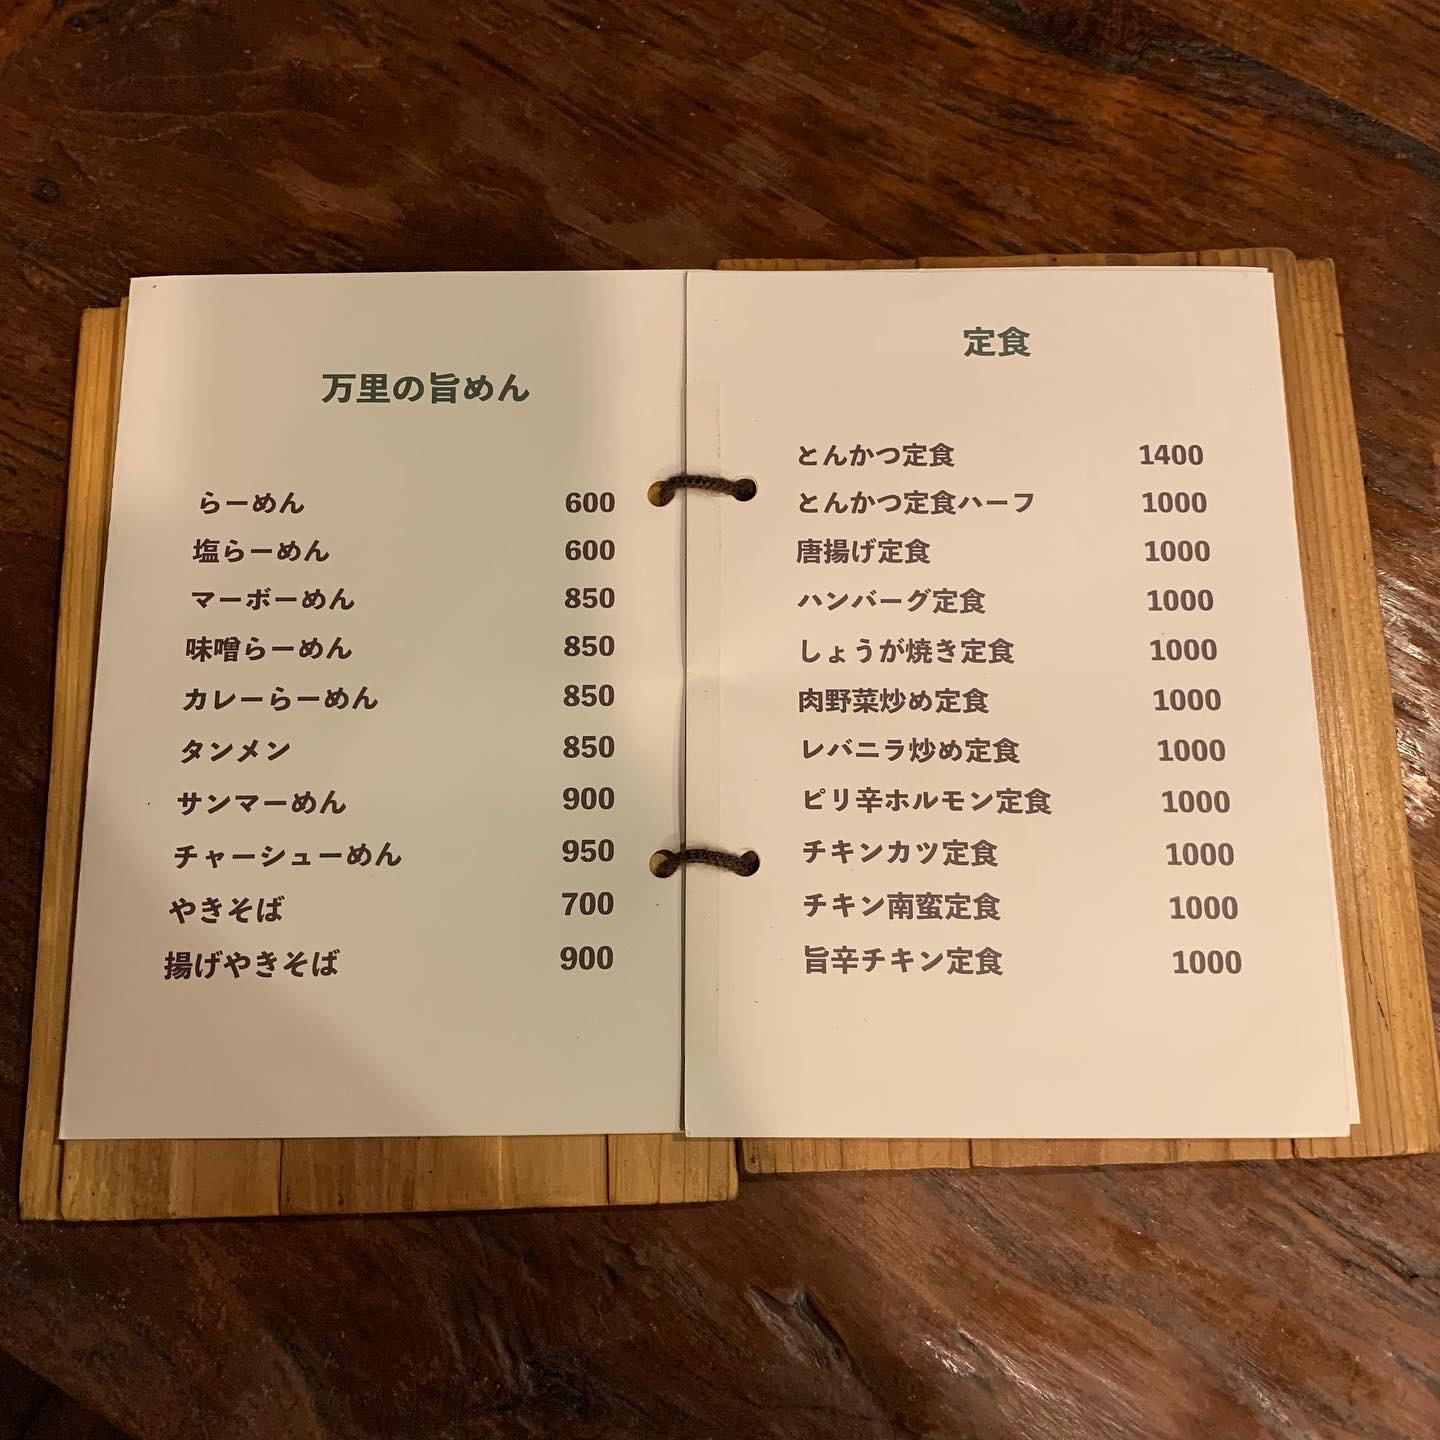 万里の旨めん
らーめん 600
塩らーめん 600
マーボーめん 850
味噌らーめん 850
カレーらーめん 850
タンメン 850
サンマーめん 900
チャーシューめん 950
やきそば 700
揚げやきそば 900
定食
とんかつ定食 1400
とんかつ定食ハーフ 1000
唐揚げ定食 1000
ハンバーグ定食 1000
しょうが焼き定食 1000
肉野菜炒め定食 1000
レバニラ炒め定食 1000
ピリ辛ホルモン定食 1000
チキンカツ定食 1000
チキン南蛮定食 1000
旨辛チキン定食 1000